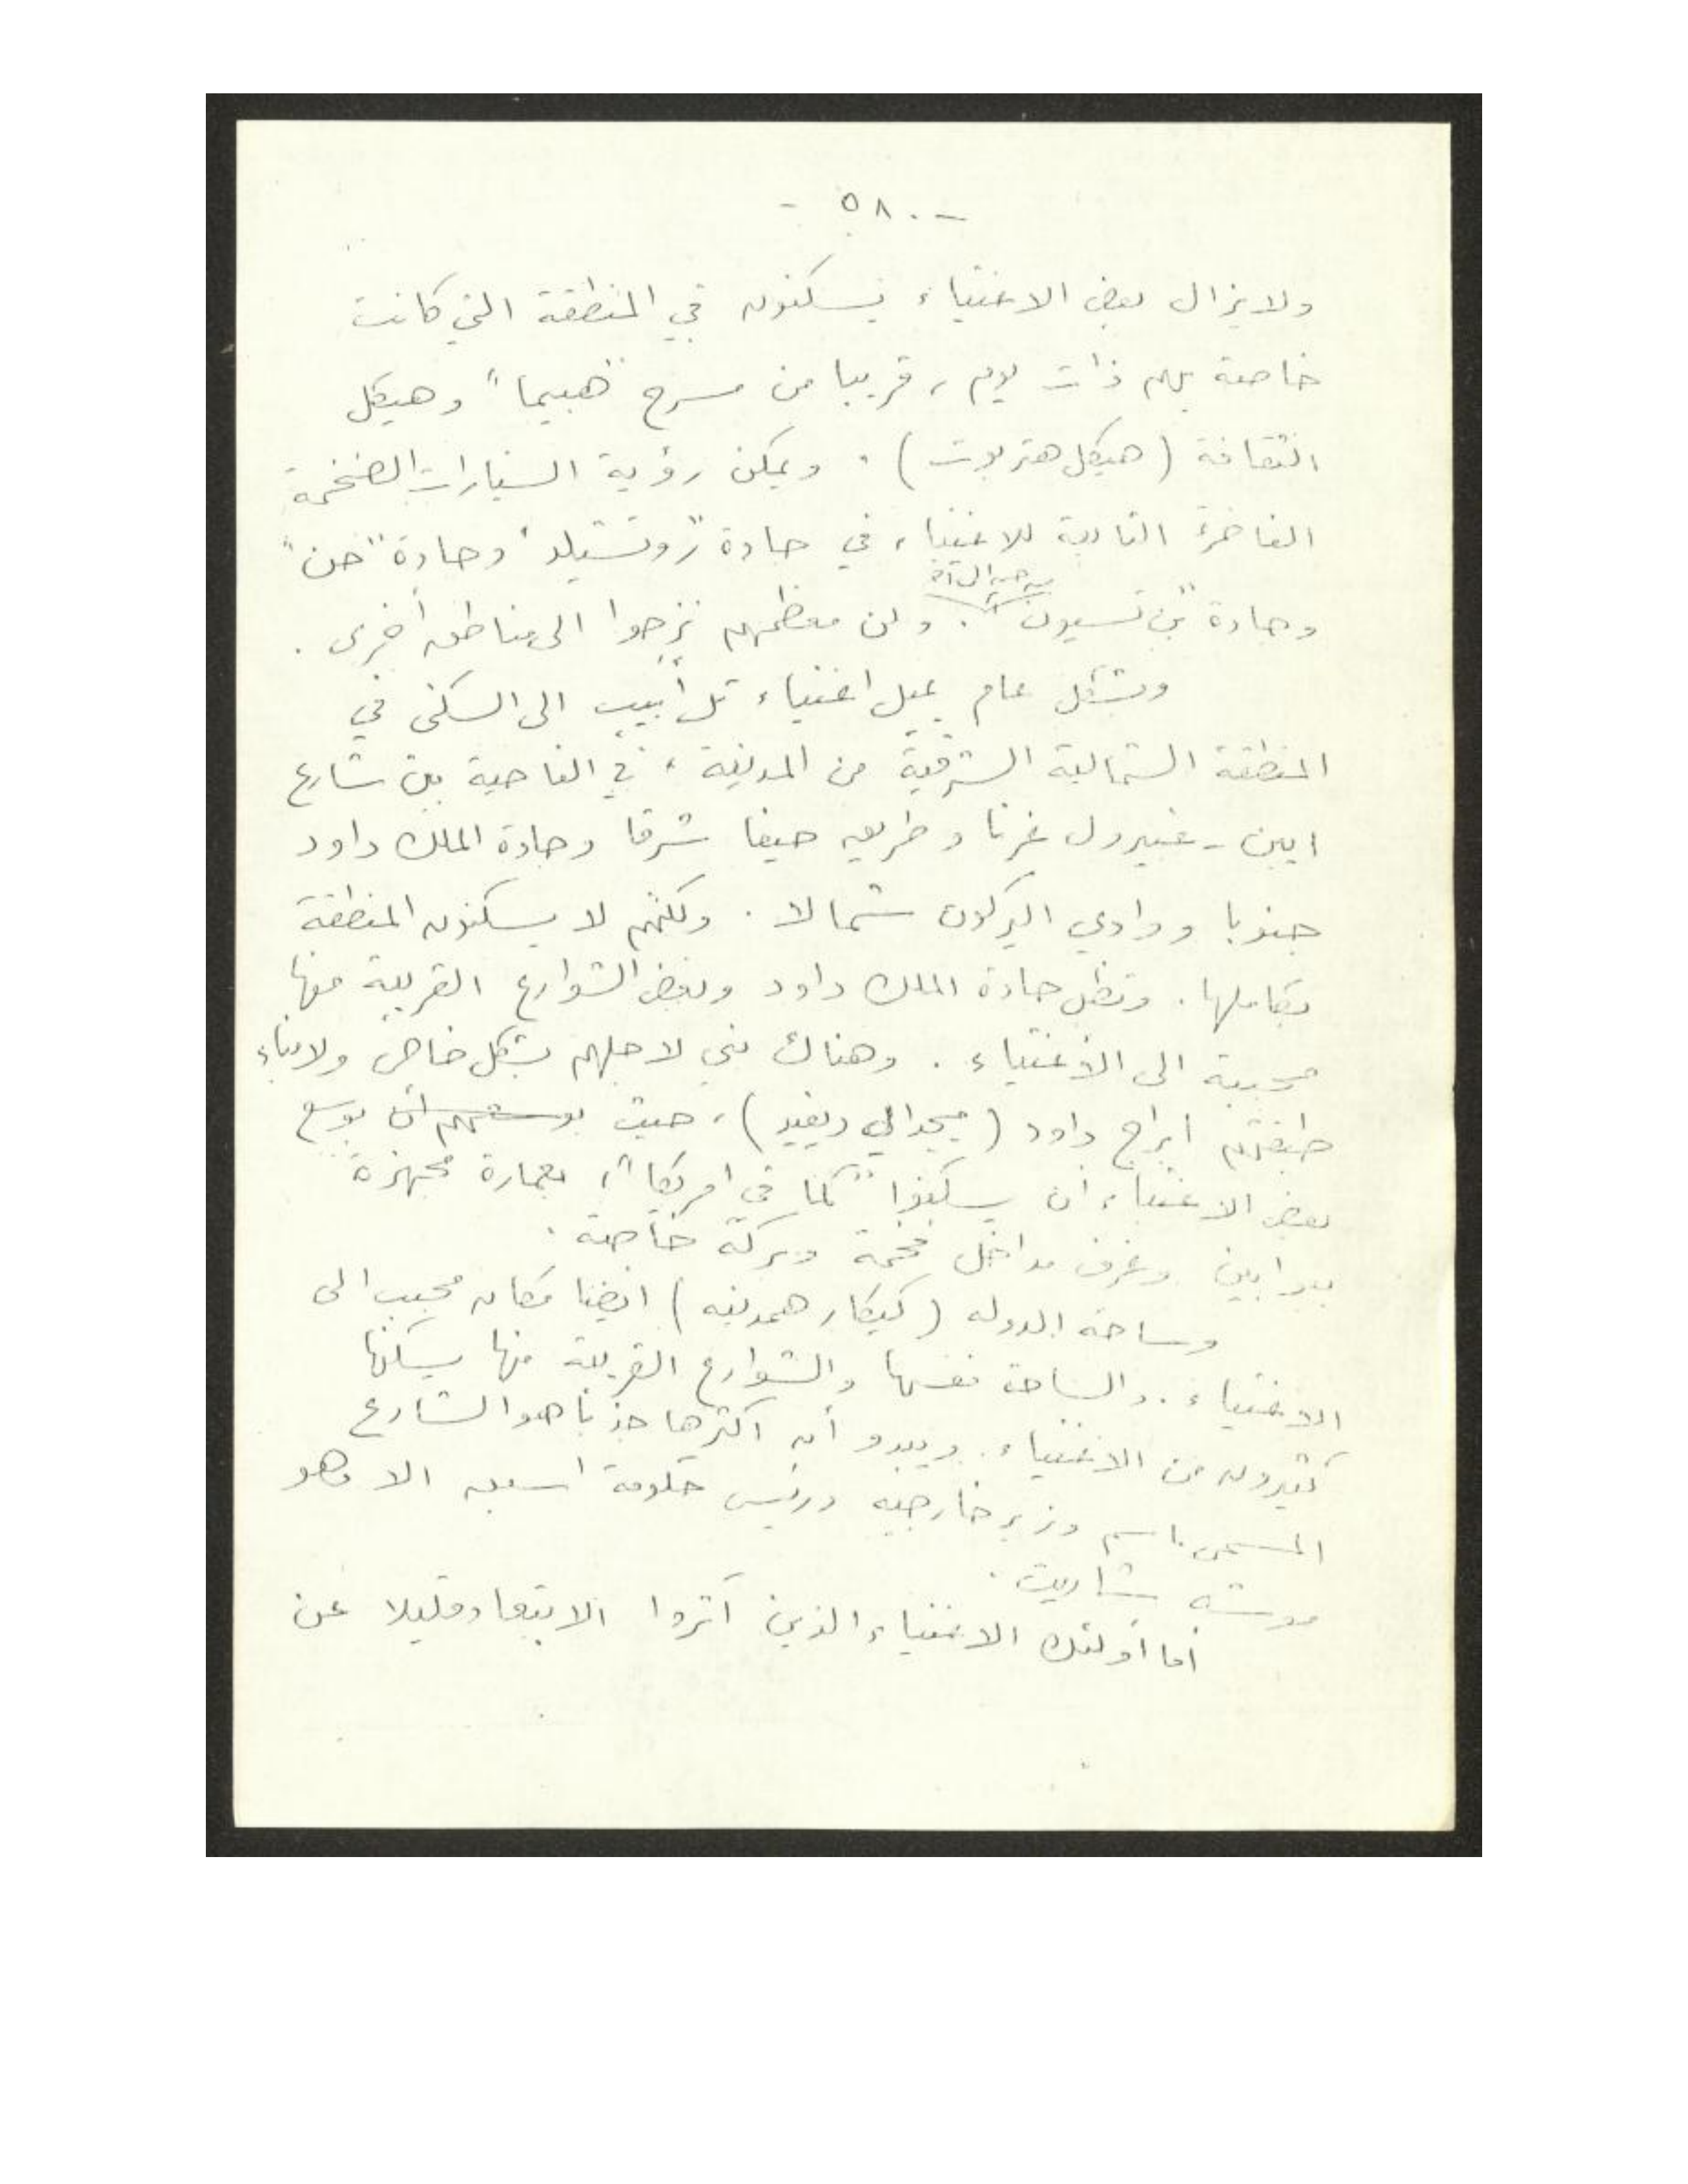 - ٥٨٠ -
ولا يزال بعض الاغنياء يسكنون في المنطقة التي كانت
خاصة بهم ذات يوم، قريبا من مسرح "هبيما" وهيكل
الثقافة (هيكل هتربوت). ويمكن رؤية السيارات الضخمة
الفاخرة التابعة للاغنياء في جادة "روتشيلد" وجادة "حن"
وجادة "بن تسيون" من حين الى آخر. ولكن معظمهم نزحوا الى مناطق أخرى.
وبشكل عام يميل اغنياء تل أبيب الى السكنى في
المنطقة الشمالية الشرقية من المدينة، في الناحية بين شارع
ابن - غبيرول غربا وطريق حيفا شرقا وجادة الملك داود
جنوبا ووادي اليركون شمالا. ولكنهم لا يسكنون المنطقة
بكاملها. وتظل جادة الملك داود وبعض الشوارع القريبة منها
محببة الى الاغنياء. وهناك بني لاجلهم بشكل خاص ولابناء
طبقتهم ابراج داود (مجدالي ديفيد)، حيث بوسعهم أن بوسع
بعض الاغنياء ان يسكنوا "كما في امريكا"، بعمارة مجهزة
ببوابين وغرف مداخل فخمة وبركة خاصة.
وساحة الدوله (كيكار همدينه) ايضا مكان محبب الى
الاغنياء. والساحة نفسها والشوارع القريبة منها يسكنها
كثيرون من الاغنياء. ويبدو أن اكثرها جذبا هو الشارع
المسمى باسم وزير خارجيه ورئيس حكومة اسبق الا وهو
موشه شاريت.
أما أولئك الاغنياء الذين آثروا الابتعاد قليلا عن